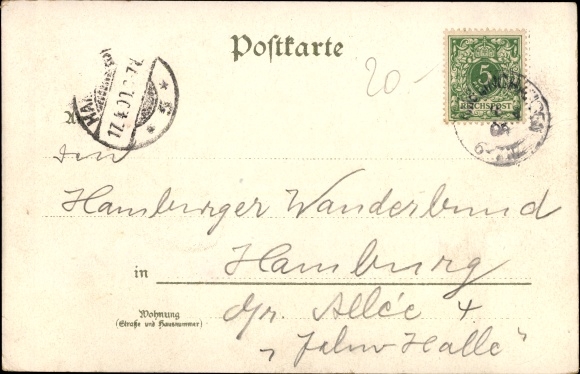 Postkarte
20.-
5
REICHSPOST
Hamburger Wanderbund
in Hamburg
Wohnung
(Straße und Hausnummer)
gr. Allée 4
„Jahn Halle"